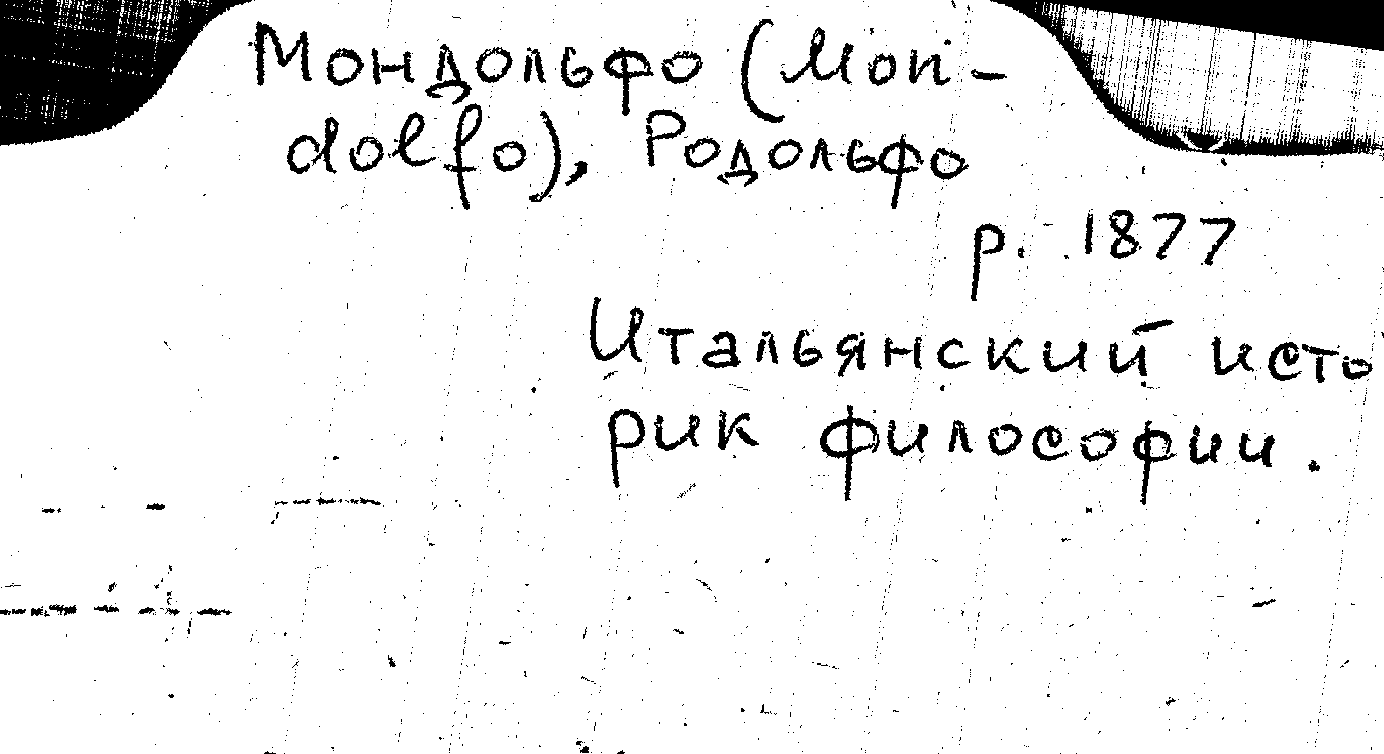 Мондольфо (Mon-
dolfo), Родольфо
р. 1877
Итальянский исто
рик философии.